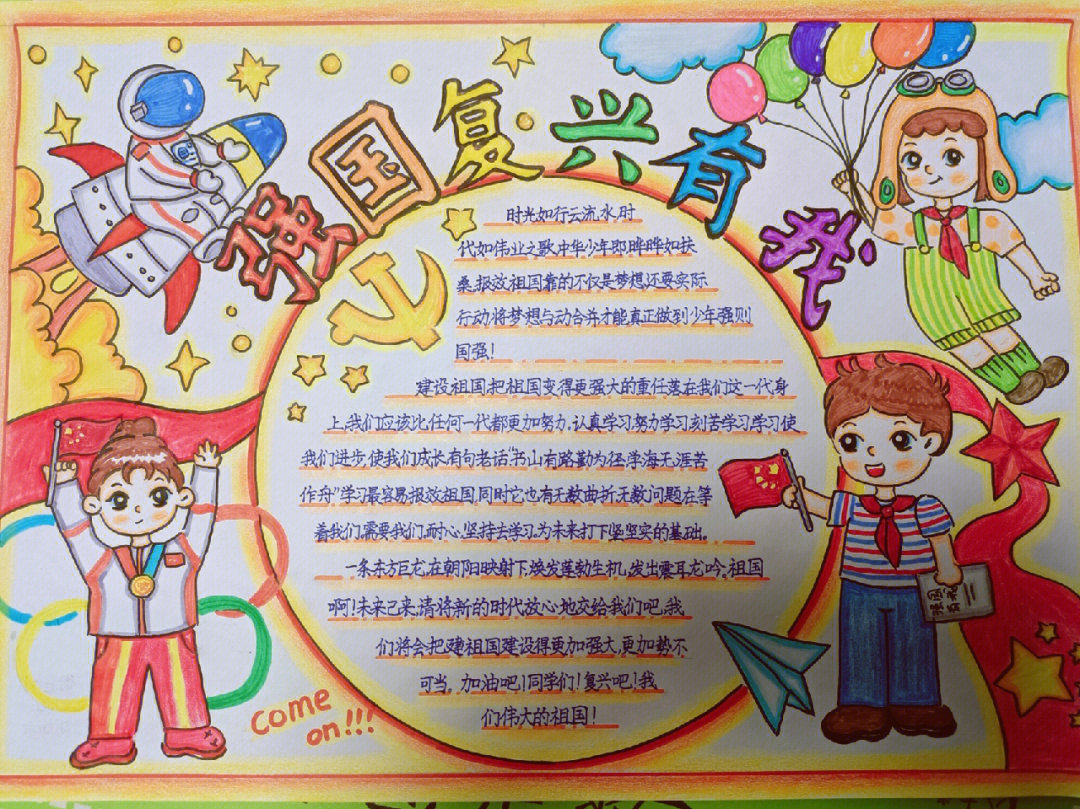 强国复兴有我
时光如行云流水,时
代如伟业之歌,中华少年郎晔晔如扶
桑,报效祖国靠的不仅是梦想,还要实际
行动,将梦想与动合并才能真正做到少年强则
国强!
建设祖国,把祖国变得更强大的重任落在我们这一代身
上,我们应该比任何一代都更加努力,认真学习,努力学习,刻苦学习,学习使
我们进步,使我们成长,有句老话“书山有路勤为径,学海无涯苦
作舟”学习最容易报效祖国,同时它也有无数曲折无数问题在等
着我们,需要我们耐心,坚持去学习,为未来打下坚坚实的基础。
一条东方巨龙,在朝阳映射下,焕发蓬勃生机,发出震耳龙吟。祖国
啊!未来已来,请将新的时代放心地交给我们吧,我
们将会把建祖国建设得更加强大,更加势不
可当。加油吧!同学们!复兴吧!我
们伟大的祖国!
come
on!!!